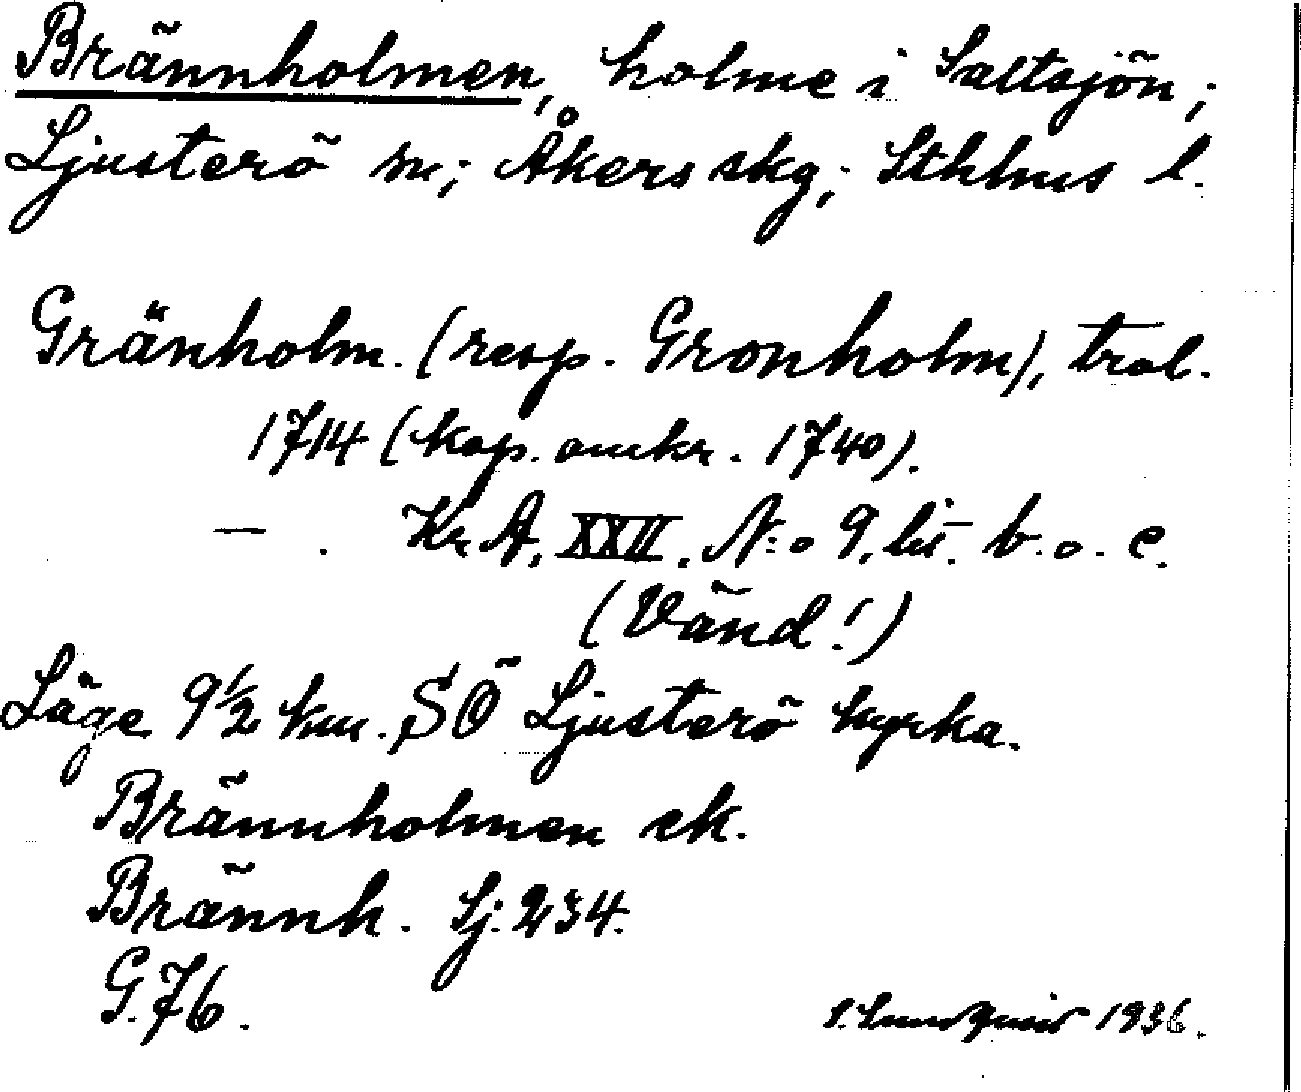 Brännholmen, holme i Saltsjön;
Ljusterö sn; Åkers skg; Sthlms l.
Gränholm. (resp. Gronholm), trol.
1714 (kop. omkr. 1740).
— . Kr A, XXII. N:o 9. lit. b. o. c.
(Vänd!)
Läge 9 1/2 km. SÖ Ljusterö kyrka.
Brännholmen ek.
Brännh. Sj. 234.
G. 76.
S. Lundquist 1936.